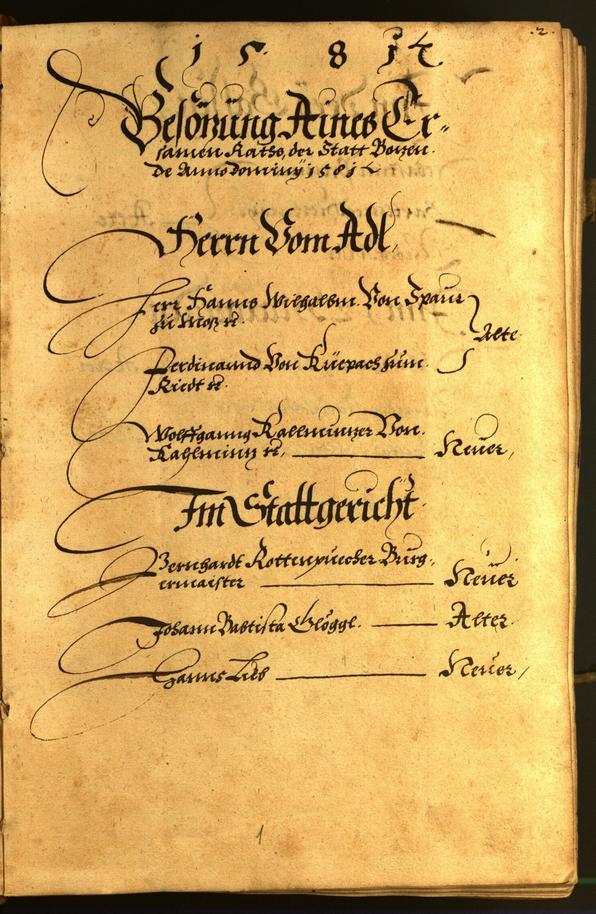 .2.
1 5 8 14
Besözung Aines Er-
samen Raths, der Statt Bozen.
De Anno dominy 1581 4
Herrn Vom Adl,
Herr Hanns Wilhalbm. Von Spaur
zu
Alte
Ferdinannd Von Küepach zum
Riedt rc.
Wolffganng Kallmunzer Von.
Kahlmüntz rc. Neuer,
Im Stattgericht
Bernhardt Rottenpuecher Burg-
ermaister Neüer
Johann Babtista Glöggl. Alter.
Hanns Lieb Neuer,
1